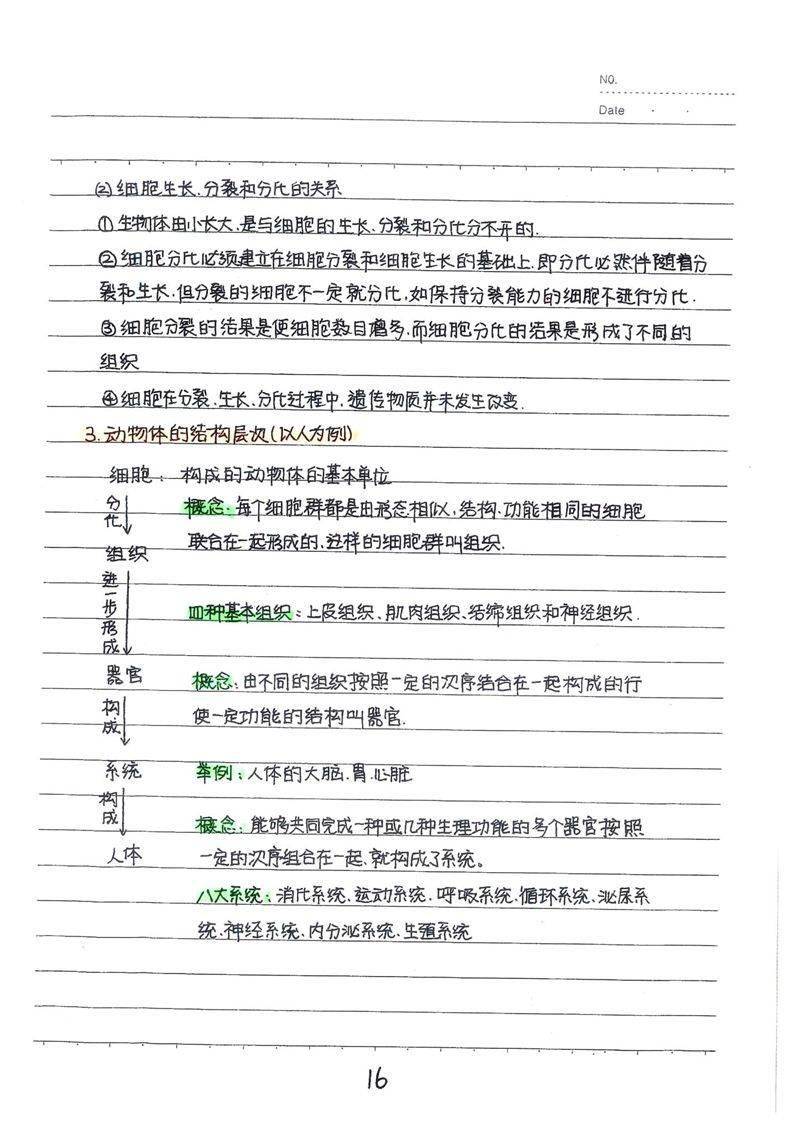 NO.
Date
(2)细胞生长、分裂和分化的关系
①生物体由小长大,是与细胞的生长、分裂和分化分不开的.
②细胞分化必须建立在细胞分裂和细胞生长的基础上,即分化必然伴随着分
裂和生长,但分裂的细胞不一定就分化,如保持分裂能力的细胞不进行分化.
③细胞分裂的结果是使细胞数目增多,而细胞分化的结果是形成了不同的
组织
④细胞在分裂、生长、分化过程中,遗传物质并未发生改变.
3.动物体的结构层次(以人为例)
细胞: 构成的动物体的基本单位
分化 概念:每个细胞群都是由形态相似,结构、功能相同的细胞
联合在一起形成的,这样的细胞群叫组织.
组织
进一步形成 四种基本组织:上皮组织、肌肉组织、结缔组织和神经组织.
器官 概念:由不同的组织按照一定的次序结合在一起构成的行
构成 使一定功能的结构叫器官.
系统 举例:人体的大脑、胃、心脏
构成 概念:能够共同完成一种或几种生理功能的多个器官按照
人体 一定的次序组合在一起,就构成了系统。
八大系统:消化系统、运动系统、呼吸系统、循环系统、泌尿系
统、神经系统、内分泌系统、生殖系统
16